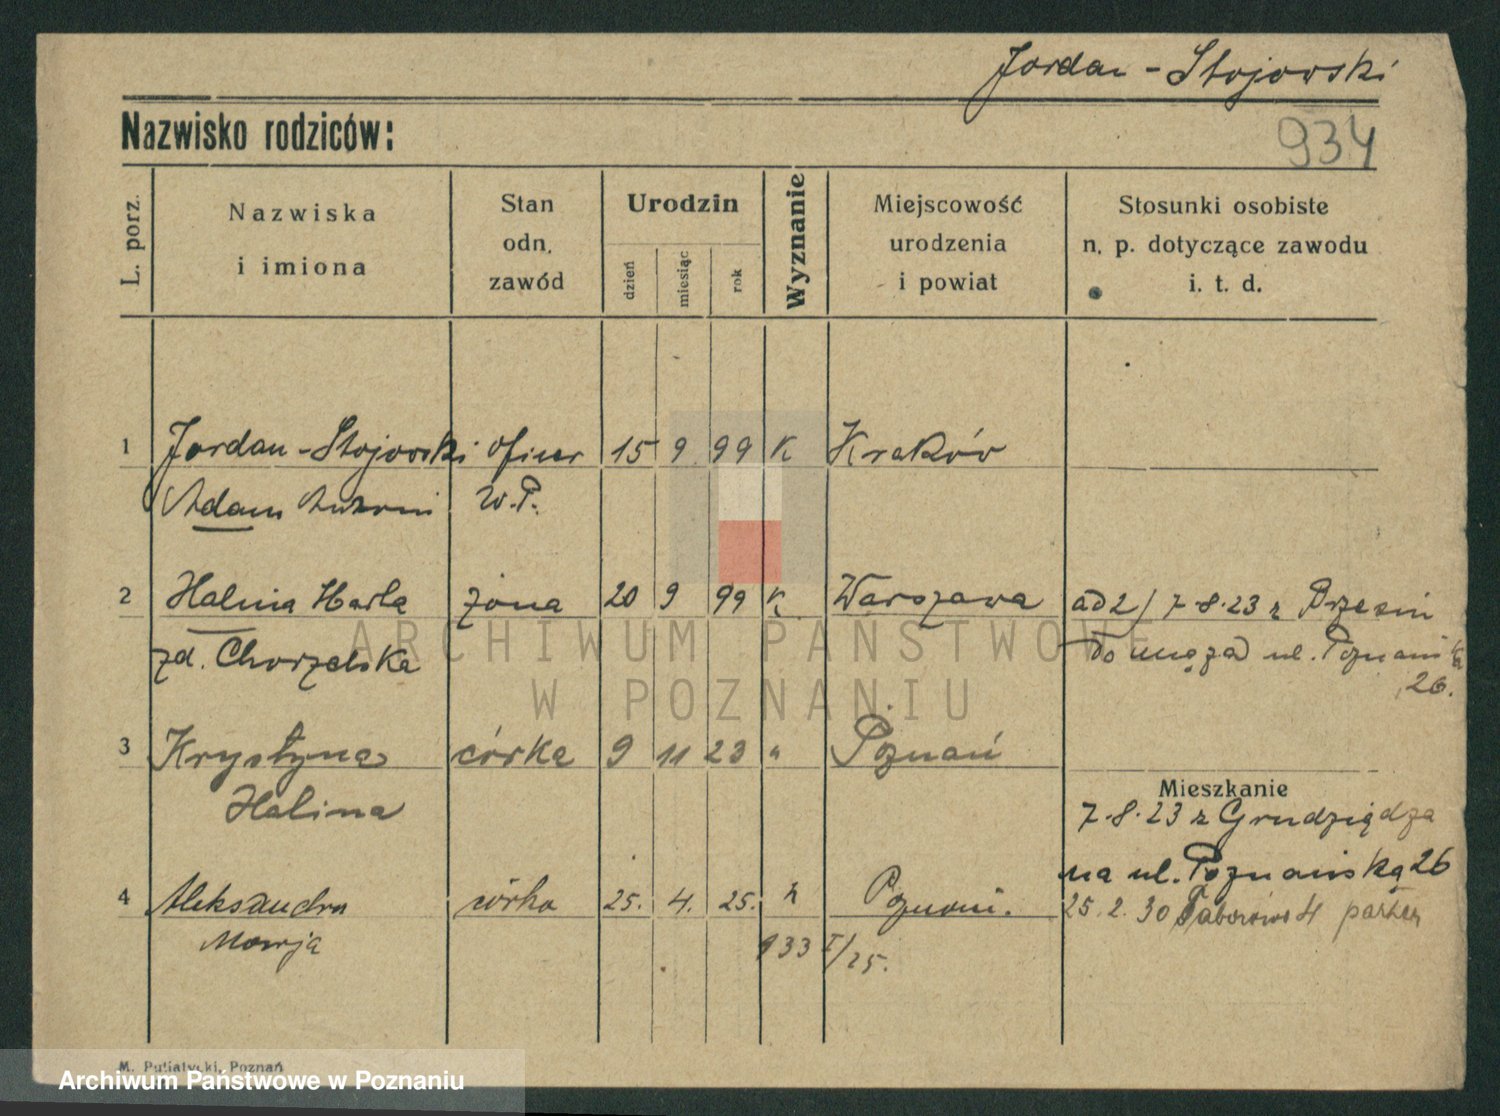 Jordan - Stojowski
Nazwisko rodziców:
934
L. porz.
Nazwiska
i imiona
Stan
odn.
zawód
Urodzin
dzień
miesiąc
rok
Wyznanie
Miejscowość
urodzenia
i powiat
Stosunki osobiste
n. p. dotyczące zawodu
i. t. d.
1 Jordan - Stojowski oficer 15 9 99 K Kraków
Adam Antoni W.P.
2 Halina Marta żona 20 9 99 K Warszawa ad 2/ 7.8.23 z Brzezin
zd. Chorzelska do męża ul. Poznańska
26.
3 Krystyna córka 9 11 23 " Poznań
Halina
Mieszkanie
7.8.23 z Grudziądza
na ul. Poznańską 26
4 Aleksandra córka 25. 4. 25. Poznań. 25.2.30 Taborowa 4 parter
Marja
933 I/25.
M. Putiatycki, Poznań
ARCHIWUM PAŃSTWOWE
W POZNANIU
Archiwum Państwowe w Poznaniu